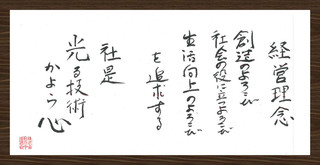 経営理念
創造のよろこび
社会の役に立つよろこび
生活向上のよろこび
を追求する
社是
光る技術
かよう心